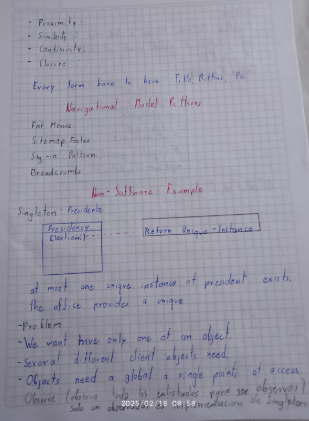 - Proximity
- Similarity
- Continuity
- Closure
Every form have to have Title, Button,
Navigational Model Patterns
Fat Menus
Sitemap Footer
Sign-in Pattern
Breadcrumbs
Non-Software Example
Singleton: Presidents
Presidency
Election()
Return Unique-Instance
at most one unique instance of president exists.
the office provides a unique
-Problem
-We want have only one of an object
-Several different client objects need
-Objects need a global a single point of access
Observer (observa todo los enlistados para ser observados)
Solo un observador es implementacion de Singleton
2025/02/18 08:58